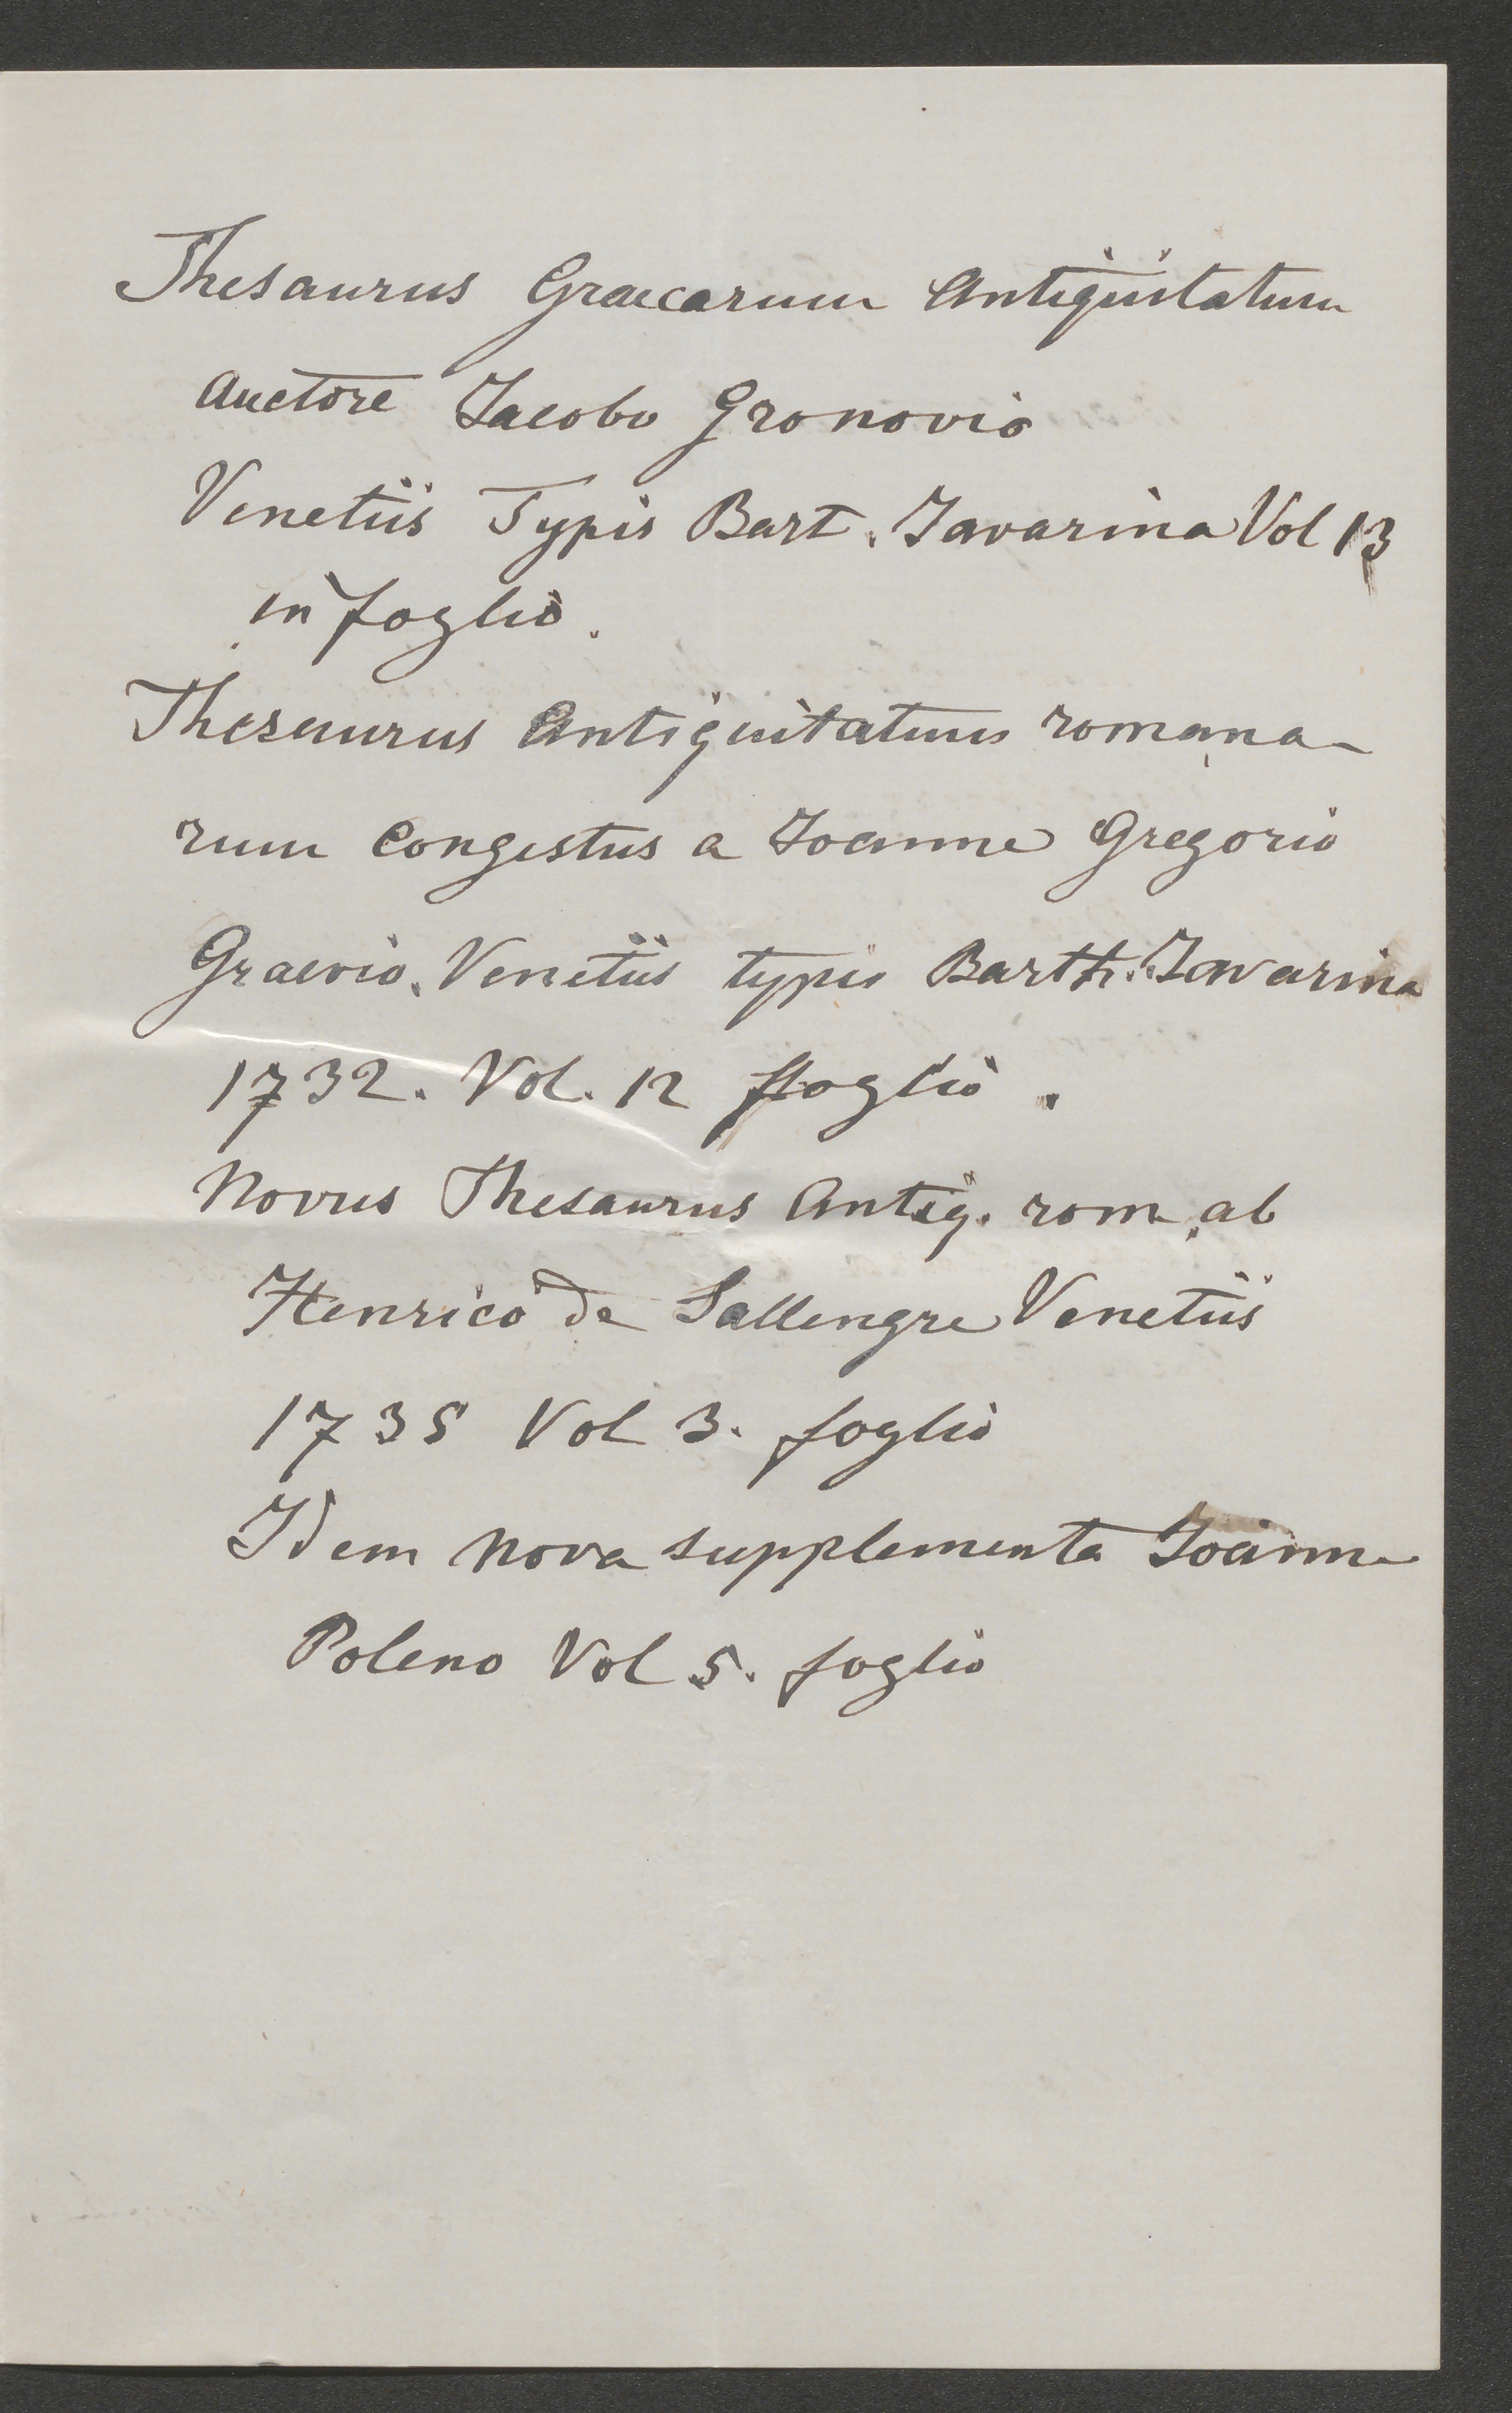 Thesaurus Graecarum Antiquitatum
Auctore Jacobo Gronovio
Venetiis Typis Bart. Javarina Vol 13
in foglio.
Thesaurus Antiquitatum romana-
rum Congestus a Joanne Gregorio
Graevio. Venetiis typis Barth. Javarina
1732. Vol. 12 foglio.
Novus Thesaurus Antiq. rom. ab
Henrico de Sallengre Venetiis
1735 Vol 3. foglio
Idem Nova supplementa Joanne
Poleno Vol 5. foglio